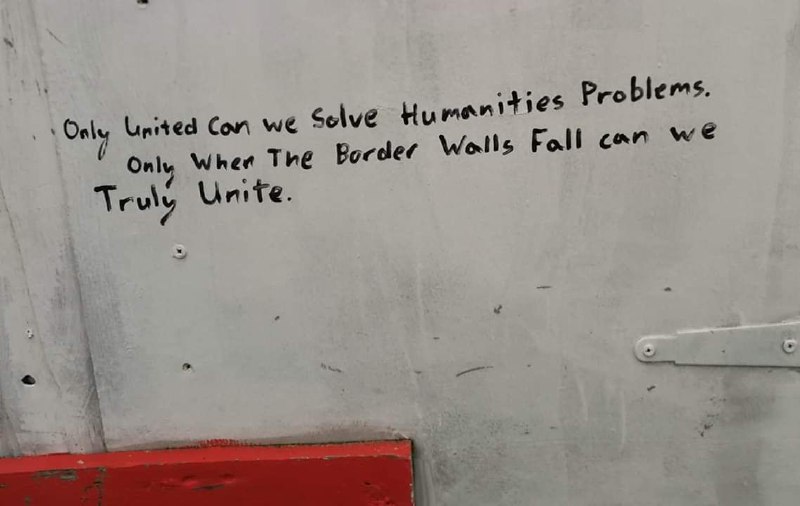 Only United Can we Solve Humanities Problems.
Only When The Border Walls Fall can we
Truly Unite.